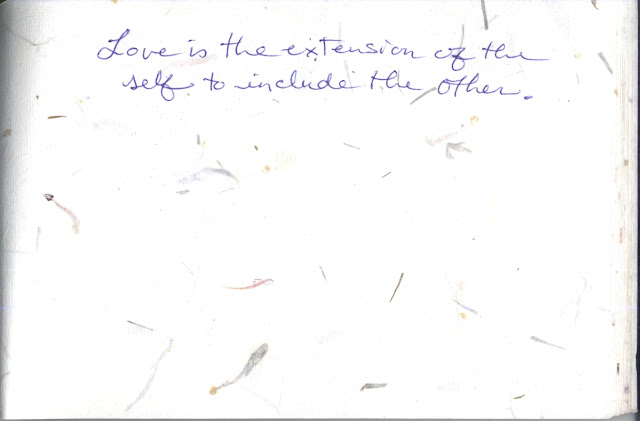 Love is the extension of the
self to include the other.